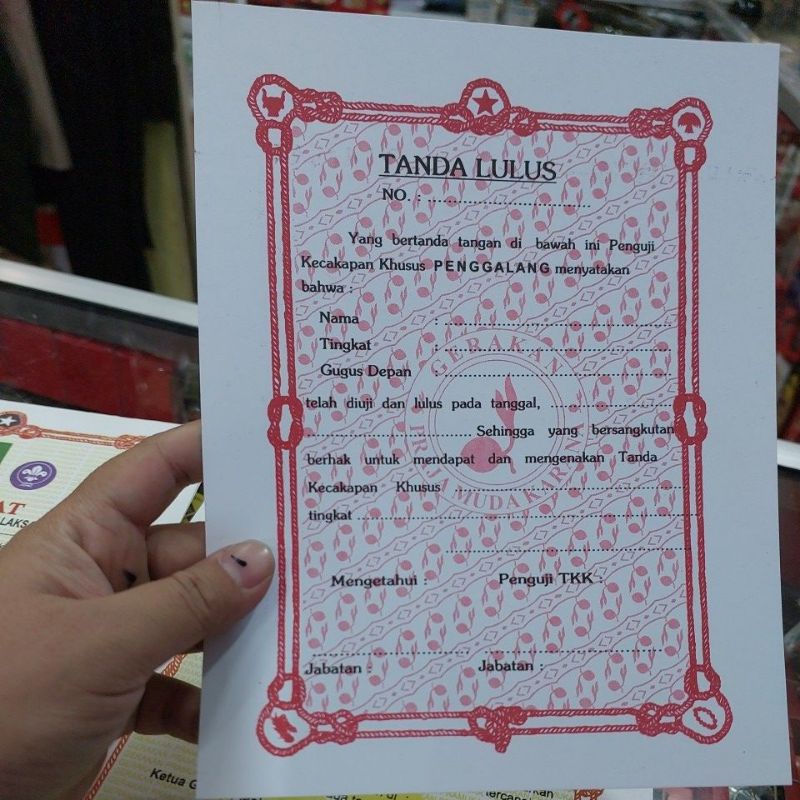 TANDA LULUS
NO. : ........................................
Yang bertanda tangan di bawah ini Penguji
Kecakapan Khusus PENGGALANG menyatakan
bahwa :
Nama : ........................................
Tingkat : ........................................
Gugus Depan : ........................................
telah diuji dan lulus pada tanggal, ....................
........................................ Sehingga yang bersangkutan
berhak untuk mendapat dan mengenakan Tanda
Kecakapan Khusus ........................................
tingkat ........................................
........................................
Mengetahui : Penguji TKK :
........................................ ........................................
Jabatan : Jabatan :
GERAKAN
MUDA KARANA
AT
LAKS
Ketua G